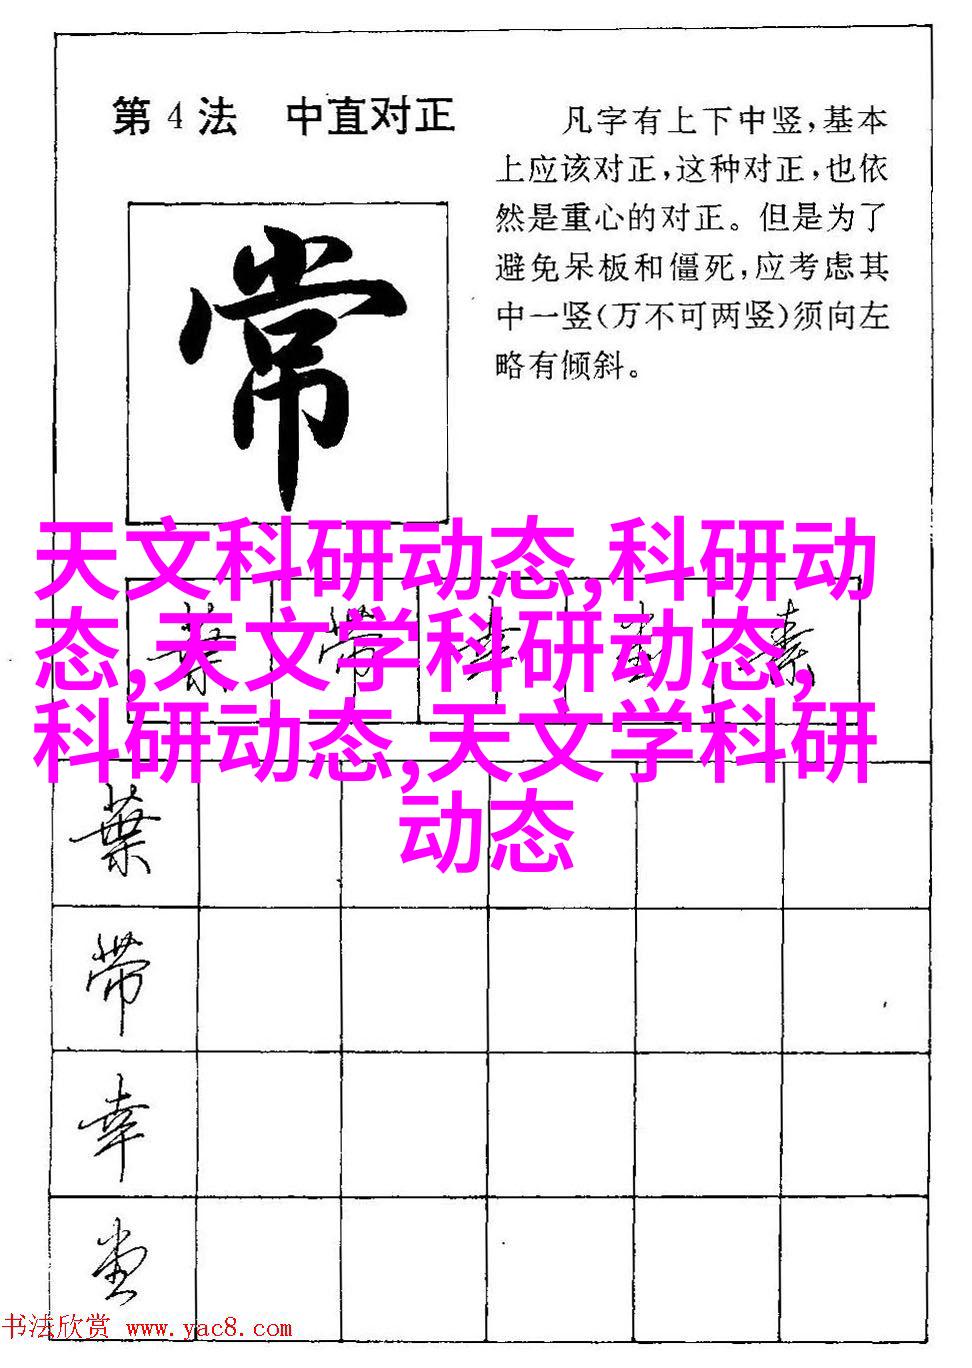 第4法 中直对正
凡字有上下中竖,基本
上应该对正,这种对正,也依
然是重心的对正。但是为了
避免呆板和僵死,应考虑其
中一竖(万不可两竖)须向左
略有倾斜。
常
天文科研动态,科研动
态,天文学科研动态,
科研动态,天文学科研
动态
葉 带 幸 堂 素
葉
带
幸
堂
书法欣赏 www.yac8.com